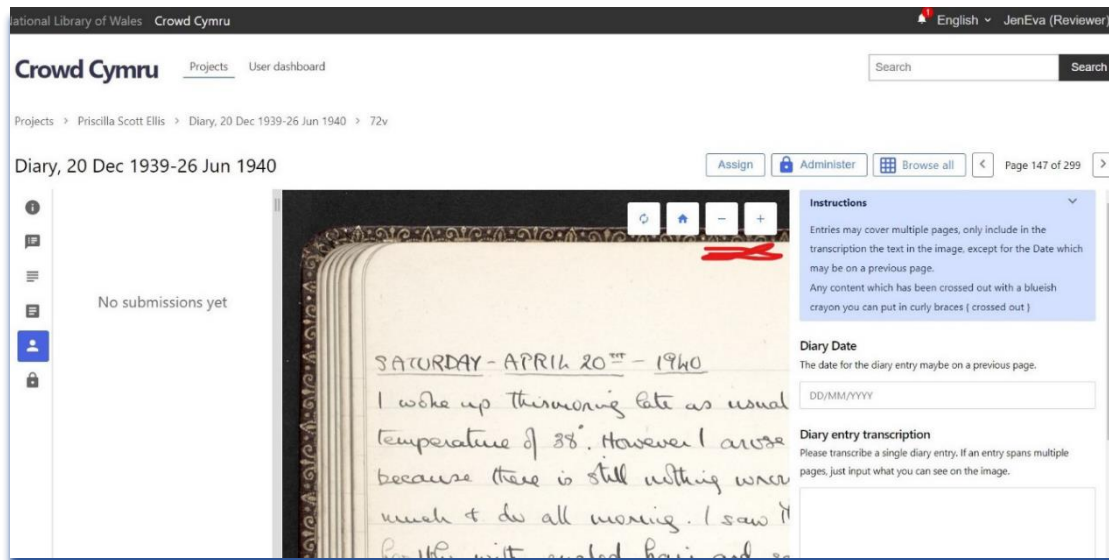 National Library of Wales Crowd Cymru
1
English JenEva (Reviewer)
Crowd Cymru Projects User dashboard
Search Search
Projects > Priscilla Scott Ellis > Diary, 20 Dec 1939-26 Jun 1940 > 72v
Diary, 20 Dec 1939-26 Jun 1940
Assign Administer Browse all < Page 147 of 299 >
No submissions yet
SATURDAY - APRIL 20TH - 1940
I woke up this morning late as usual
temperature of 38°. However I arose
because there is still nothing
much & do all morning. I saw
with hair and
Instructions
Entries may cover multiple pages, only include in the
transcription the text in the image, except for the Date which
may be on a previous page.
Any content which has been crossed out with a blueish
crayon you can put in curly braces { crossed out }
Diary Date
The date for the diary entry maybe on a previous page.
DD/MM/YYYY
Diary entry transcription
Please transcribe a single diary entry. If an entry spans multiple
pages, just input what you can see on the image.